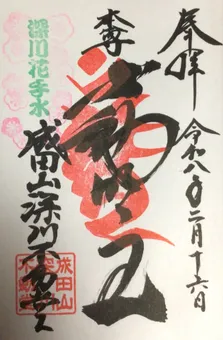 奉拝
令和八年二月十六日
季
不動明王
成田山深川不動堂
深川花手水
成田山